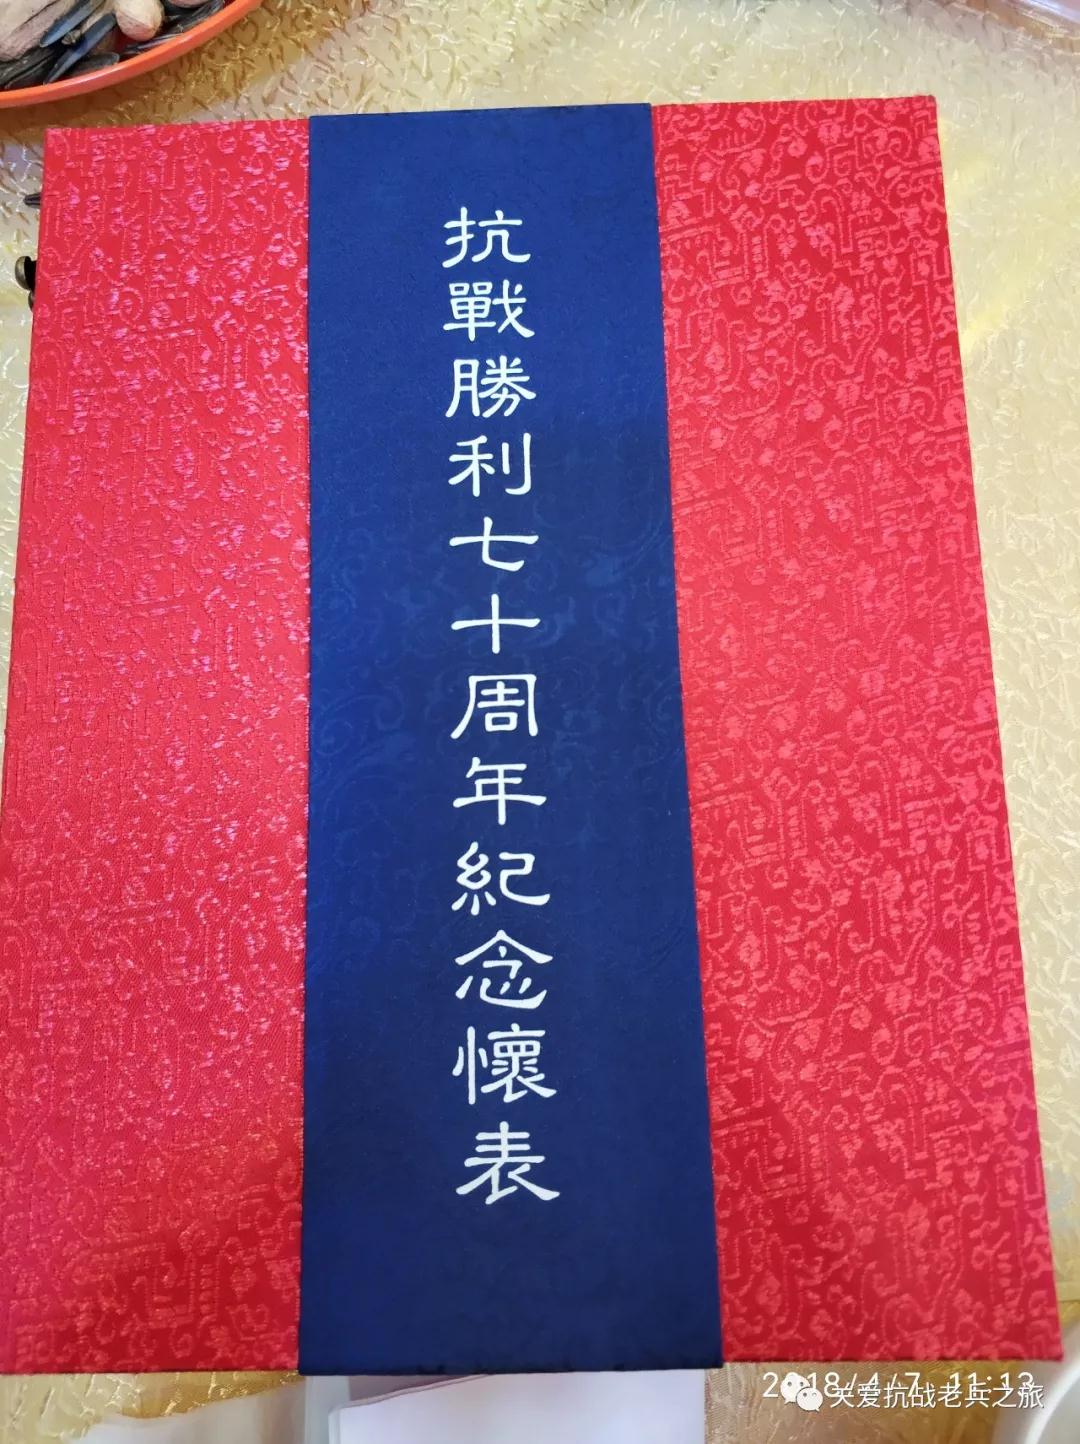 抗戰勝利七十周年紀念懷表
2018/4/7 11:13
关爱抗战老兵之旅